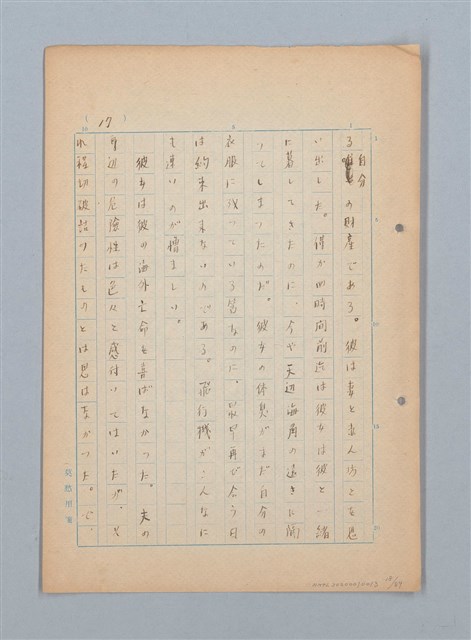 (17)
自分
るの財産である。彼は妻と妻人
い出した。僅か四時間前迄は彼女は彼と一緒
に暮してきたのに、今や天辺海角の遠きに
つてしまつたのだ。彼女の体臭がまだ自分の
衣服に残つている筈なのに。最早再び会う日
は約束出来ないのである。飛行機がこんなに
も速いのが憎ましい。
彼女は彼の海外亡命を喜ばなかつた。夫の
身辺の危険性は色々と感付いてはいたが、そ
れ程切破詰つたものとは思はなかつた。で、
用箋